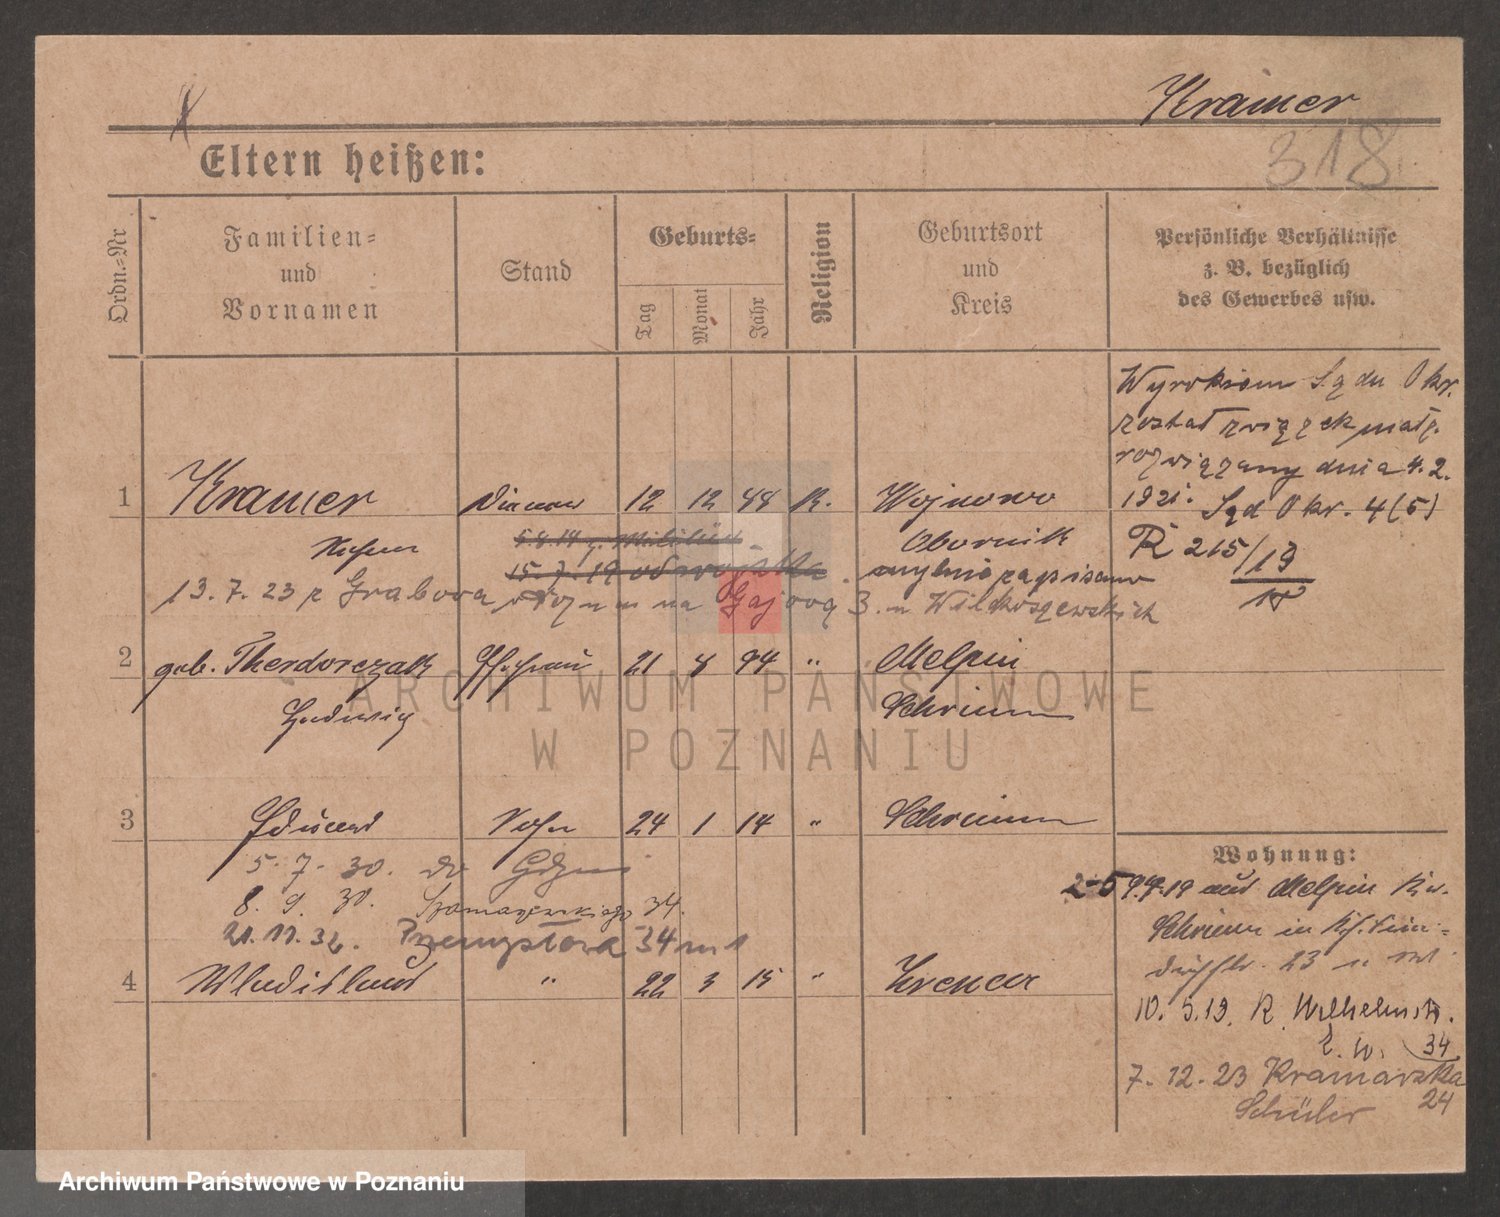 Kramer
318
Eltern heißen:
Ordn.-Nr
Familien- und Vornamen
Stand
Geburts-
Tag
Monat
Jahr
Religion
Geburtsort und Kreis
Persönliche Verhältnisse z. B. bezüglich des Gewerbes usw.
Wyrokiem Sądu Okr.
został związek małż.
rozwiązany dnia 4.2.
1921. Sąd Okr. 4(5)
R 215/19
1 Kramer 12 12 88 K. Wojnowo
5.8.14 z. Militär Obornik
15.7.19 od wojska mylnie zapisano
13.7.23 z Grabova na Gajową 3. u Wilkoszewskich
2 geb. Theodorczak Ehefrau 21 8 94 " Melpin
Hedwig Schrimm
3 Eduard Sohn 24 1 14 " Schrimm
5.7.30. do Gdyni
8.9.30. Szamarzewskiego 34.
21.11.32. Przemysłowa 34 m 1
4 Wladislaus " 22 3 15 "
Wohnung:
aus Melpin Kr.
Schrimm in
23
10.5.19. R. Wilhelmstr.
34
7.12.23 Kramarska
24
Schüler
ARCHIWUM PAŃSTWOWE
W POZNANIU
Archiwum Państwowe w Poznaniu